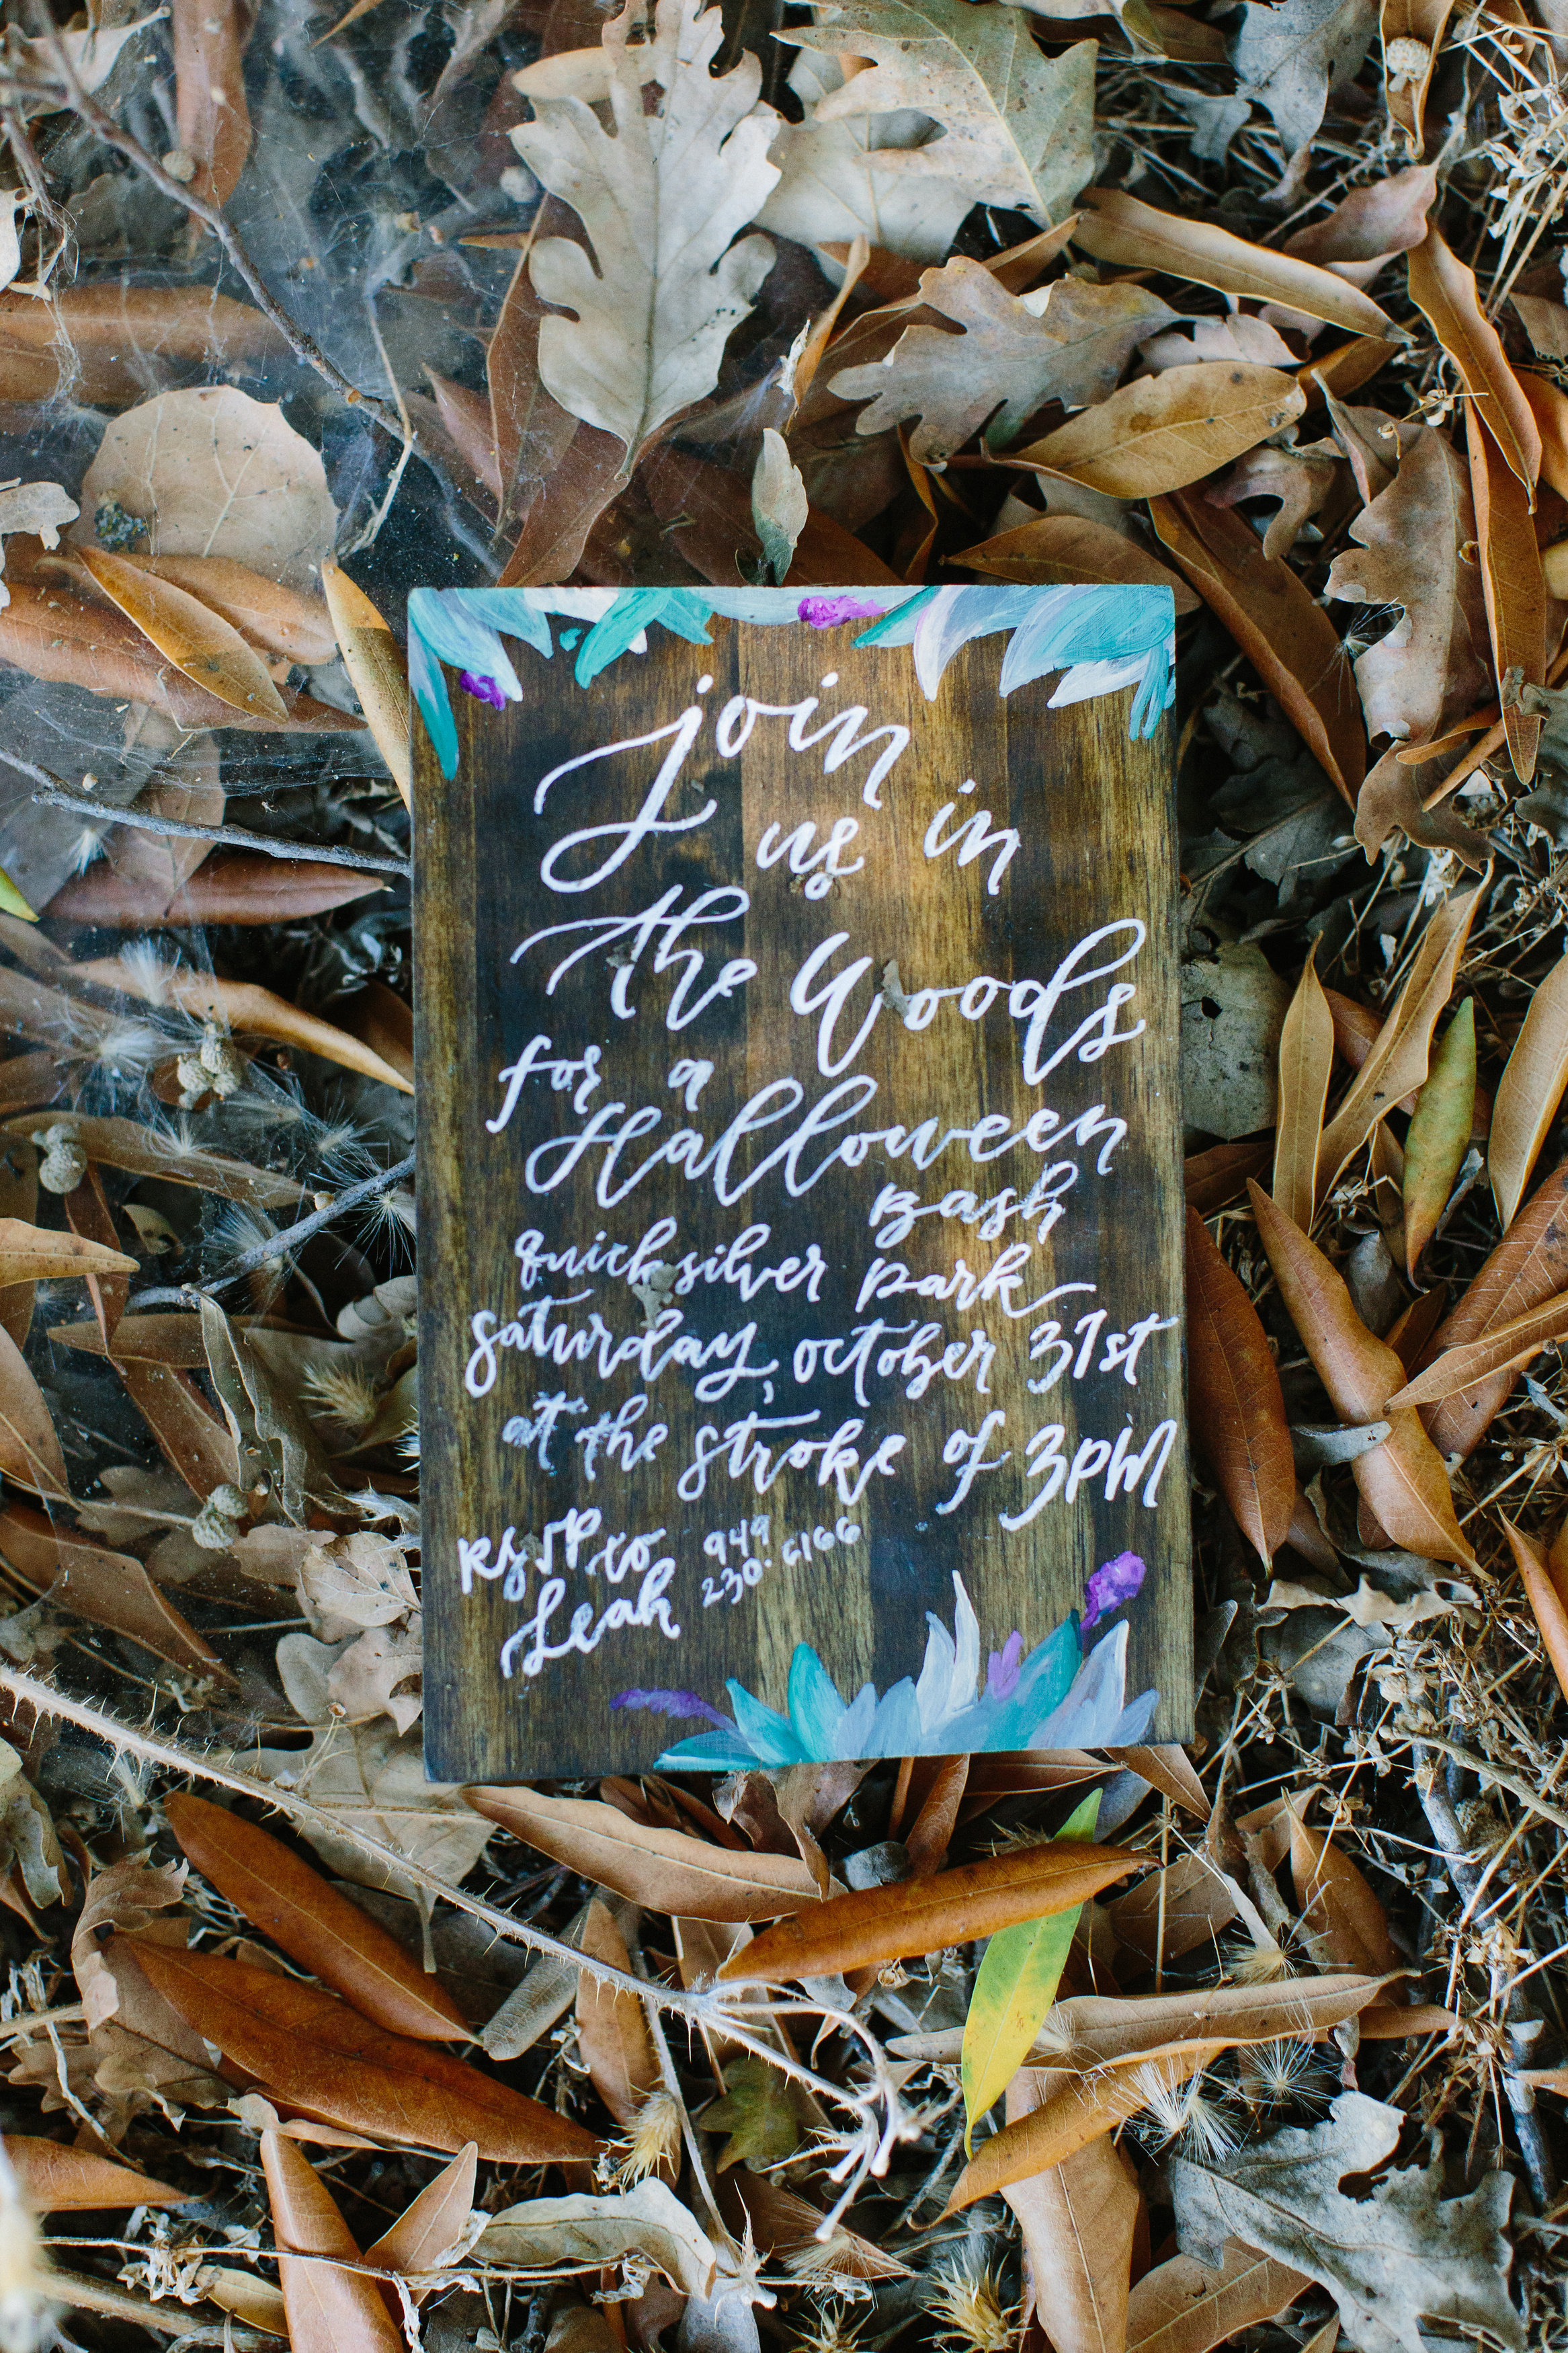 join
us in
the Woods
for a
Halloween
Bash
quicksilver park
saturday, october 31st
at the stroke of 3pm
RSVP to 949
Leah 230.6166